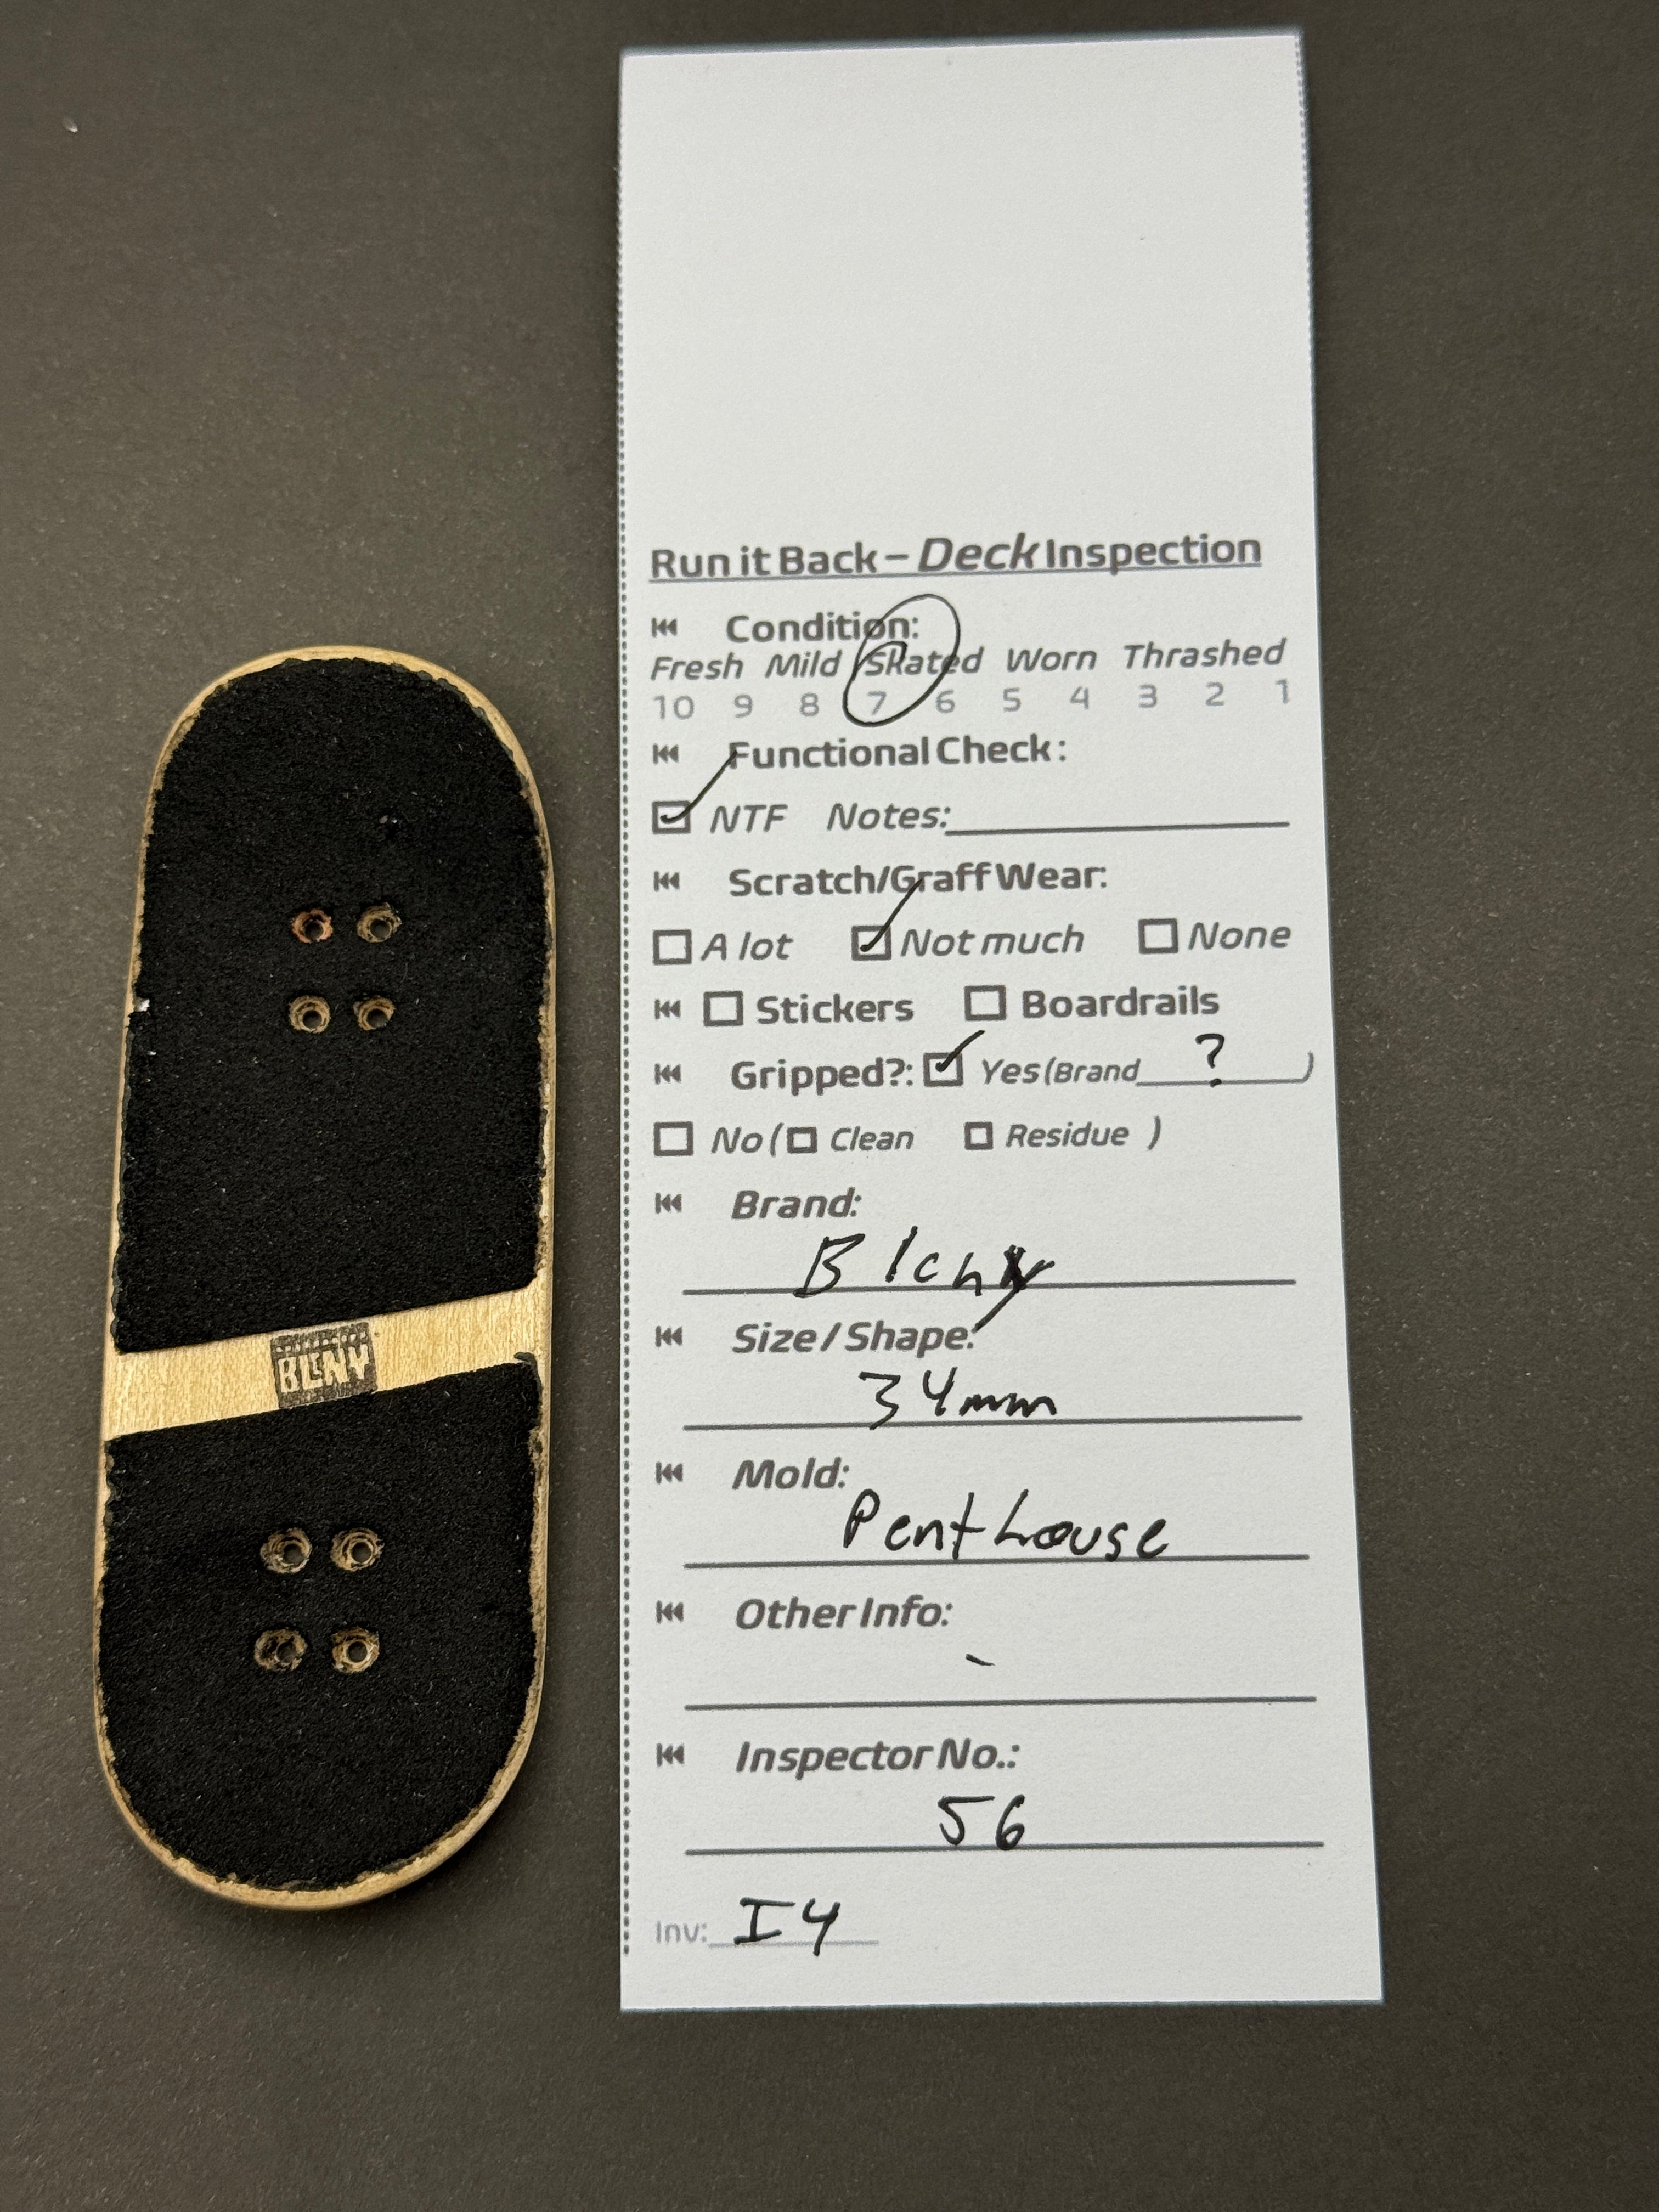 Run it Back – Deck Inspection
Condition:
Fresh Mild Skated Worn Thrashed
10 9 8 7 6 5 4 3 2 1
Functional Check:
NTF Notes:
Scratch/Graff Wear:
A lot Not much None
Stickers Boardrails
Gripped?: Yes (Brand ? )
No ( Clean Residue )
Brand:
Blcny
Size / Shape:
34mm
Mold:
Penthouse
Other Info:
-
Inspector No.:
56
Inv: I4
BLCNY